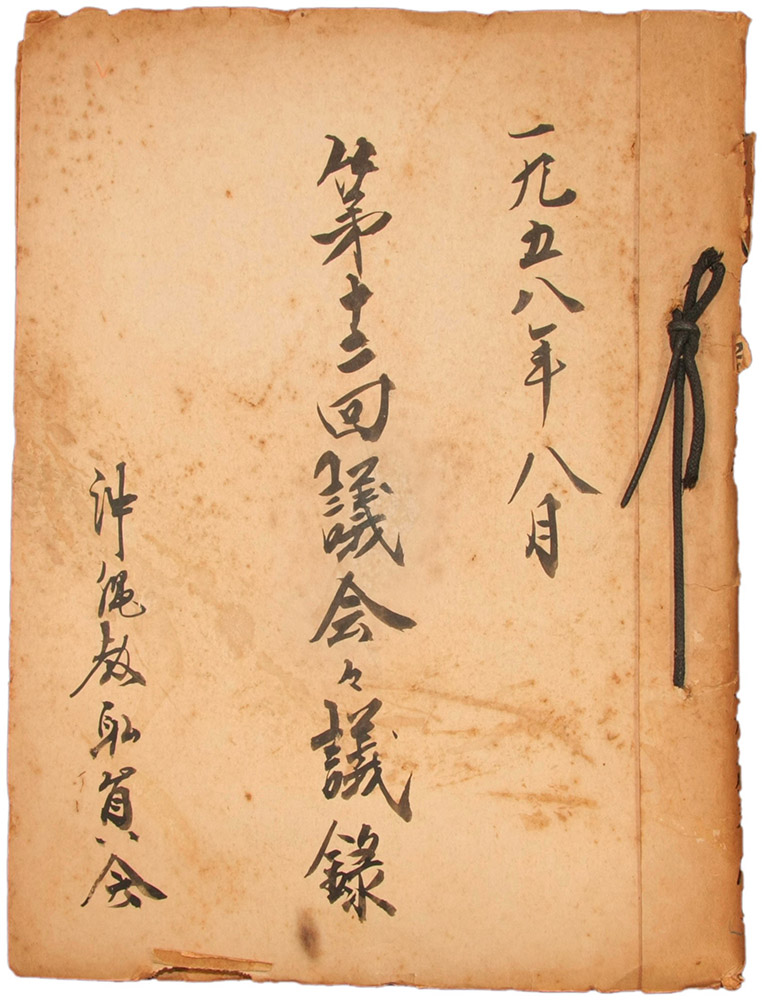 一九五八年八月
第十二回議会々議録
沖縄教職員会